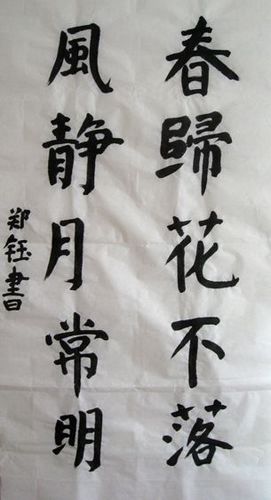 春歸花不落
風静月常明
郑钰書